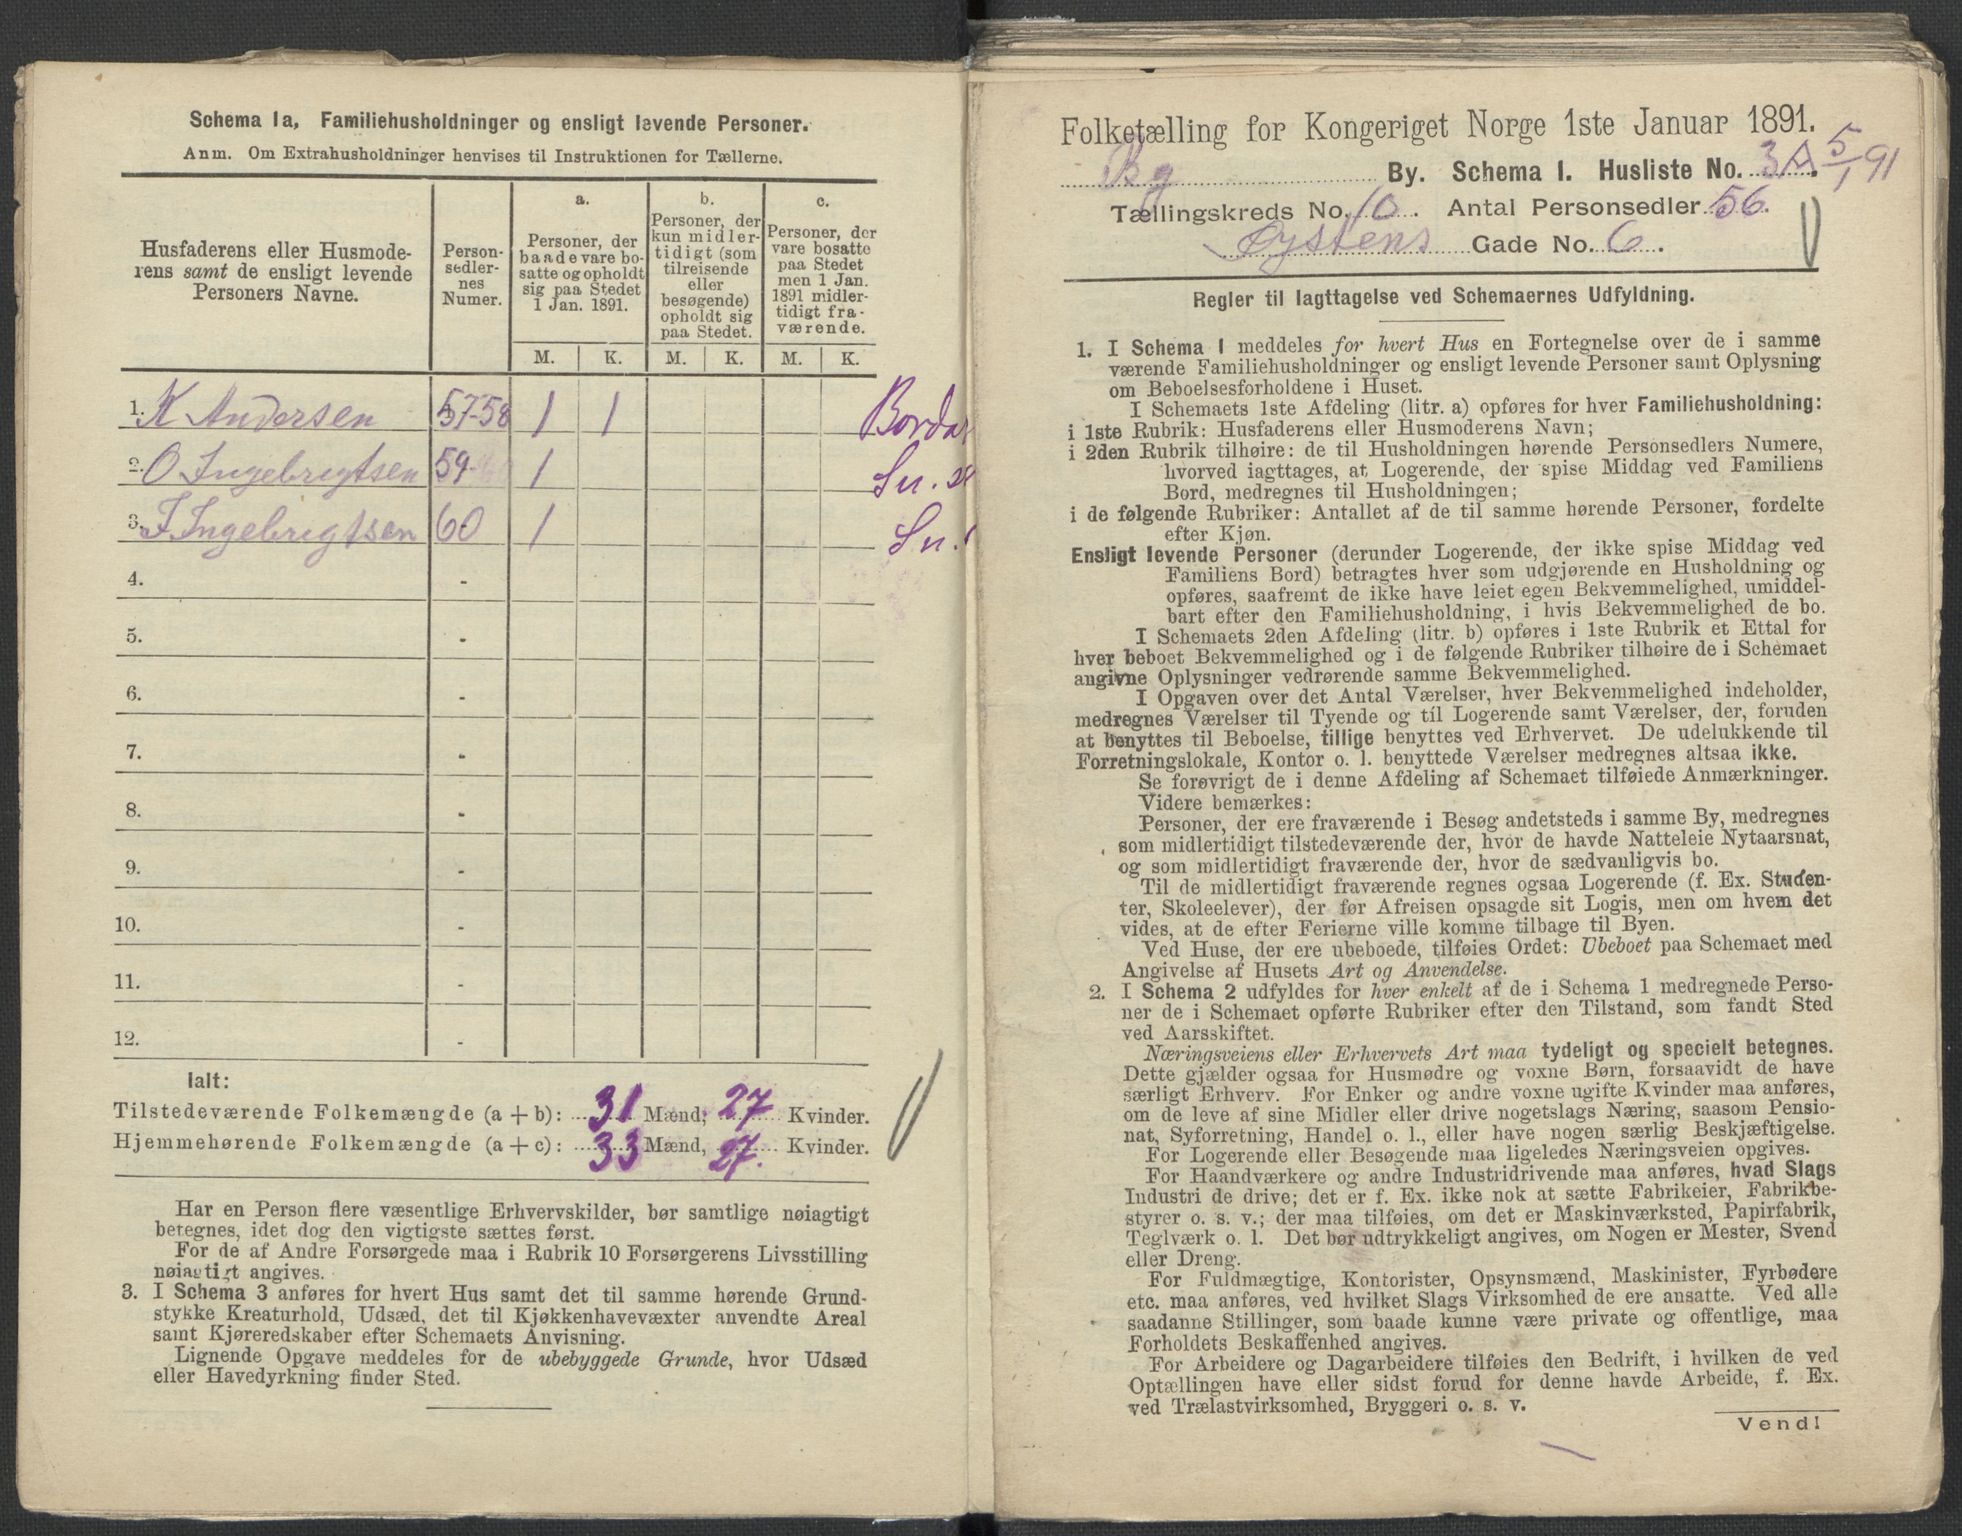 Schema 1a, Familiehusholdninger og ensligt levende Personer.
Anm. Om Extrahusholdninger henvises til Instruktionen for Tællerne.
Husfaderens eller Husmode-
rens samt de ensligt levende
Personers Navne.
Person-
sedler-
nes
Numer.
a.
Personer, der
baade vare bo-
satte og opholdt
sig paa Stedet
1 Jan. 1891.
b.
Personer, der
kun midler-
tidigt (som
tilreisende
eller
besøgende)
opholdt sig
paa Stedet.
c.
Personer, der
vare bosatte
paa Stedet
men 1 Jan.
1891 midler-
tidigt fra-
værende.
M. K. M. K. M. K.
1. K Andersen 57-58 1 1
2. O Ingebrigtsen 59 1
3. F Ingebrigtsen 60 1
4. -
5. -
6. -
7. -
8. -
9. -
10. -
11. -
12. -
Ialt:
Tilstedeværende Folkemængde (a + b): 31 Mænd; 27 Kvinder.
Hjemmehørende Folkemængde (a + c): 33 Mænd, 27. Kvinder.
Har en Person flere væsentlige Erhvervskilder, bør samtlige nøiagtigt
betegnes, idet dog den vigtigste sættes først.
For de af Andre Forsørgede maa i Rubrik 10 Forsørgerens Livsstilling
nøiagtigt angives.
3. I Schema 3 anføres for hvert Hus samt det til samme hørende Grund-
stykke Kreaturhold, Udsæd, det til Kjøkkenhavevæxter anvendte Areal
samt Kjøreredskaber efter Schemaets Anvisning.
Lignende Opgave meddeles for de ubebyggede Grunde, hvor Udsæd
eller Havedyrkning finder Sted.
Folketælling for Kongeriget Norge 1ste Januar 1891.
By. Schema 1. Husliste No. 3A. 5/1 91
Tællingskreds No. 10. Antal Personsedler 56.
Øystens Gade No. 6.
Regler til Iagttagelse ved Schemaernes Udfyldning.
1. I Schema 1 meddeles for hvert Hus en Fortegnelse over de i samme
værende Familiehusholdninger og ensligt levende Personer samt Oplysning
om Beboelsesforholdene i Huset.
I Schemaets 1ste Afdeling (litr. a) opføres for hver Familiehusholdning:
i 1ste Rubrik: Husfaderens eller Husmoderens Navn;
i 2den Rubrik tilhøire: de til Husholdningen hørende Personsedlers Numere,
hvorved iagttages, at Logerende, der spise Middag ved Familiens
Bord, medregnes til Husholdningen;
i de følgende Rubriker: Antallet af de til samme hørende Personer, fordelte
efter Kjøn.
Ensligt levende Personer (derunder Logerende, der ikke spise Middag ved
Familiens Bord) betragtes hver som udgjørende en Husholdning og
opføres, saafremt de ikke have leiet egen Bekvemmelighed, umiddel-
bart efter den Familiehusholdning, i hvis Bekvemmelighed de bo.
I Schemaets 2den Afdeling (litr. b) opføres i 1ste Rubrik et Ettal for
hver beboet Bekvemmelighed og i de følgende Rubriker tilhøire de i Schemaet
angivne Oplysninger vedrørende samme Bekvemmelighed.
I Opgaven over det Antal Værelser, hver Bekvemmelighed indeholder,
medregnes Værelser til Tyende og til Logerende samt Værelser, der, foruden
at benyttes til Beboelse, tillige benyttes ved Erhvervet. De udelukkende til
Forretningslokale, Kontor o. l. benyttede Værelser medregnes altsaa ikke.
Se forøvrigt de i denne Afdeling af Schemaet tilføiede Anmærkninger.
Videre bemærkes:
Personer, der ere fraværende i Besøg andetsteds i samme By, medregnes
som midlertidigt tilstedeværende der, hvor de havde Natteleie Nytaarsnat,
og som midlertidigt fraværende der, hvor de sædvanligvis bo.
Til de midlertidigt fraværende regnes ogsaa Logerende (f. Ex. Studen-
ter, Skoleelever), der før Afreisen opsagde sit Logis, men om hvem det
vides, at de efter Ferierne ville komme tilbage til Byen.
Ved Huse, der ere ubeboede, tilføies Ordet: Ubeboet paa Schemaet med
Angivelse af Husets Art og Anvendelse.
2. I Schema 2 udfyldes for hver enkelt af de i Schema 1 medregnede Perso-
ner de i Schemaet opførte Rubriker efter den Tilstand, som fandt Sted
ved Aarsskiftet.
Næringsveiens eller Erhvervets Art maa tydeligt og specielt betegnes.
Dette gjælder ogsaa for Husmødre og voxne Børn, forsaavidt de have
særligt Erhverv. For Enker og andre voxne ugifte Kvinder maa anføres,
om de leve af sine Midler eller drive nogetslags Næring, saasom Pensio-
nat, Syforretning, Handel o. l., eller have nogen særlig Beskjæftigelse.
For Logerende eller Besøgende maa ligeledes Næringsveien opgives.
For Haandværkere og andre Industridrivende maa anføres, hvad Slags
Industri de drive; det er f. Ex. ikke nok at sætte Fabrikeier, Fabrikbe-
styrer o. s. v.; der maa tilføies, om det er Maskinværksted, Papirfabrik,
Teglværk o. l. Det bør udtrykkeligt angives, om Nogen er Mester, Svend
eller Dreng.
For Fuldmægtige, Kontorister, Opsynsmænd, Maskinister, Fyrbødere
etc. maa anføres, ved hvilket Slags Virksomhed de ere ansatte. Ved alle
saadanne Stillinger, som baade kunne være private og offentlige, maa
Forholdets Beskaffenhed angives.
For Arbeidere og Dagarbeidere tilføies den Bedrift, i hvilken de ved
Optællingen have eller sidst forud for denne havde Arbeide, f. Ex.
ved Trælastvirksomhed, Bryggeri o. s. v.
Vend!